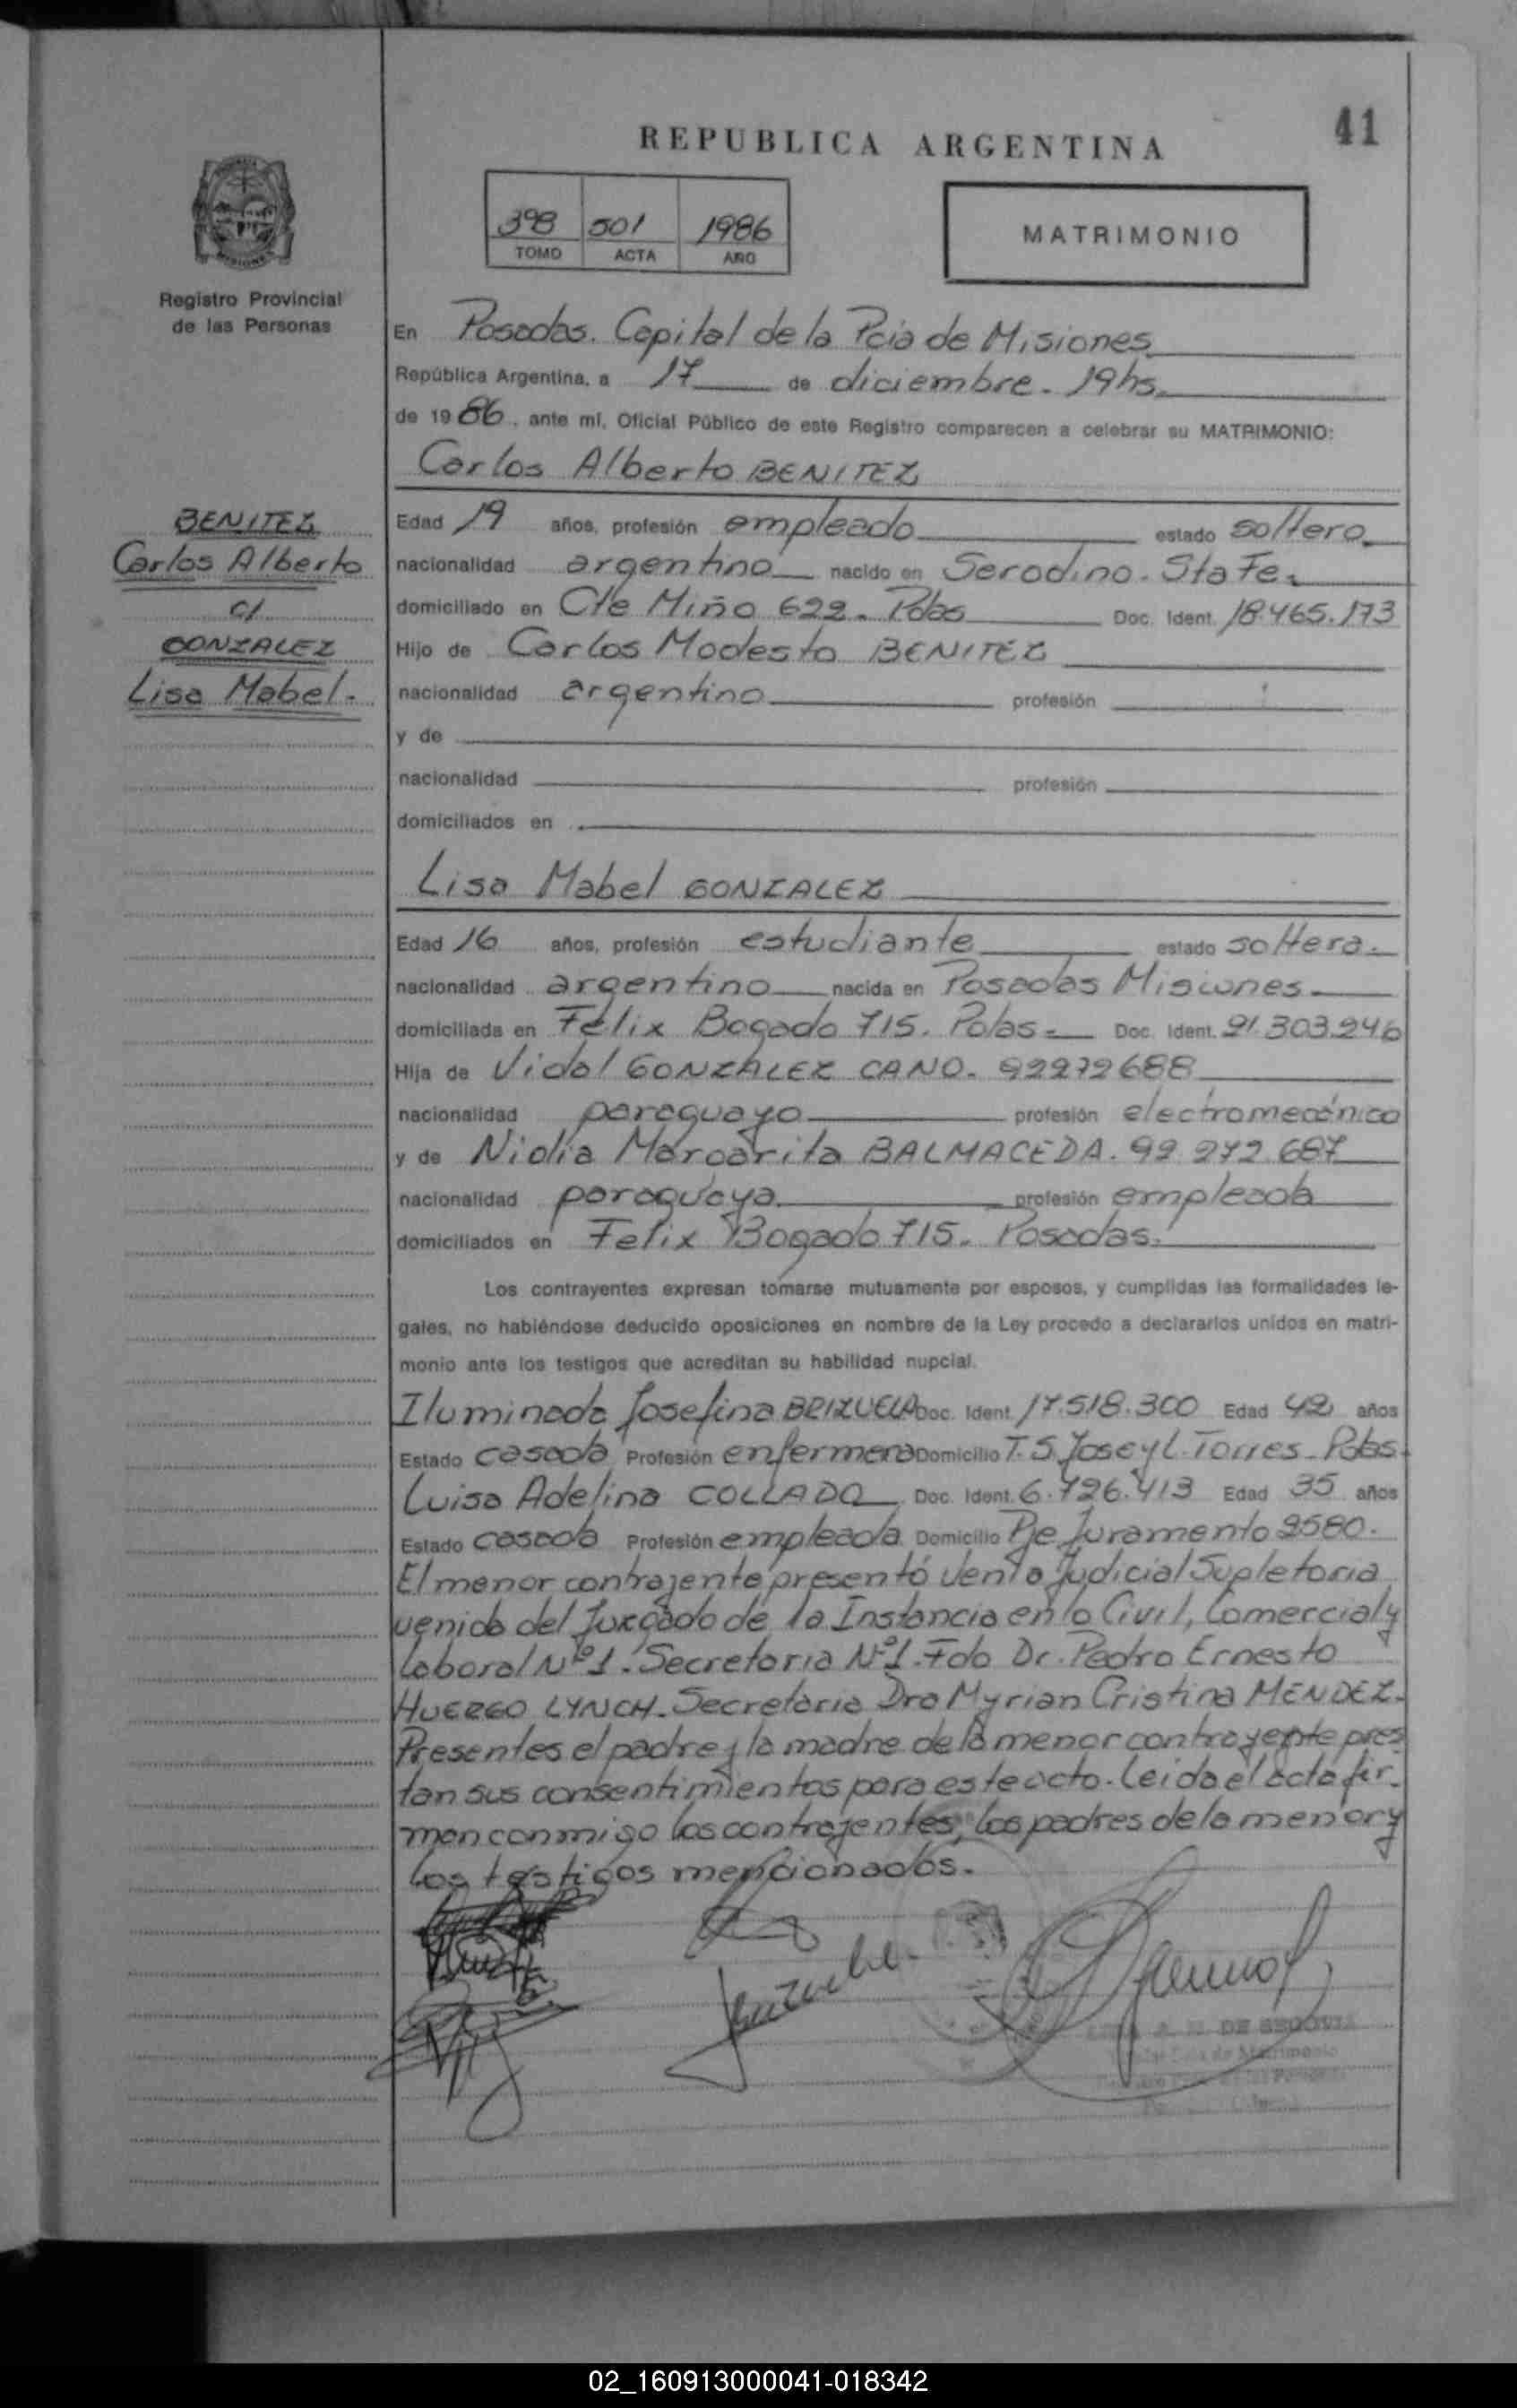 41
REPUBLICA ARGENTINA
398 501 1986
TOMO ACTA AÑO
MATRIMONIO
Registro Provincial
de las Personas
En Posadas. Capital de la Pcia de Misiones
República Argentina, a 17 de diciembre. 19hs.
de 1986, ante mí, Oficial Público de este Registro comparecen a celebrar su MATRIMONIO:
Carlos Alberto BENITEZ
BENITEZ
Carlos Alberto
c/
GONZALEZ
Lisa Mabel.
Edad 19 años, profesión empleado estado soltero
nacionalidad argentino nacido en Serodino. Sta Fe.
domiciliado en Cte Miño 622. Pdas Doc. Ident. 18.465.173
Hijo de Carlos Modesto BENITEZ
nacionalidad argentino profesión
y de
nacionalidad profesión
domiciliados en
Lisa Mabel GONZALEZ
Edad 16 años, profesión estudiante estado soltera.
nacionalidad argentino nacida en Posadas Misiones.
domiciliada en Félix Bogado 715. Pdas. Doc. Ident. 21.303.246
Hija de Vidal GONZALEZ CANO. 92272688
nacionalidad paraguayo profesión electromecánico
y de Nidia Margarita BALMACEDA. 92.272.687
nacionalidad paraguaya profesión empleada
domiciliados en Felix Bogado 715. Posadas.
Los contrayentes expresan tomarse mutuamente por esposos, y cumplidas las formalidades le-
gales, no habiéndose deducido oposiciones en nombre de la Ley procedo a declararlos unidos en matri-
monio ante los testigos que acreditan su habilidad nupcial.
Iluminada Josefina BRIZUELA Doc. Ident. 17.518.300 Edad 42 años
Estado casada Profesión enfermera Domicilio T. S. Jose y L. Torres. Pdas.
Luisa Adelina COLLADO Doc. Ident. 6.726.413 Edad 35 años
Estado casada Profesión empleada Domicilio Pje Juramento 2580.
El menor contrayente presentó Venia Judicial Supletoria
venida del Juzgado de 1a Instancia en lo Civil, Comercial y
Laboral Nº 1. Secretaria Nº 1. Fdo Dr. Pedro Ernesto
HUERGO LYNCH. Secretaria Dra Myrian Cristina MENDEZ.
Presentes el padre y la madre de la menor contrayente pres
tan sus consentimientos para este acto. Leida el acta fir-
man conmigo los contrayentes, los padres de la menor y
los testigos mencionados.
DE SEGOVIA
02_160913000041-018342